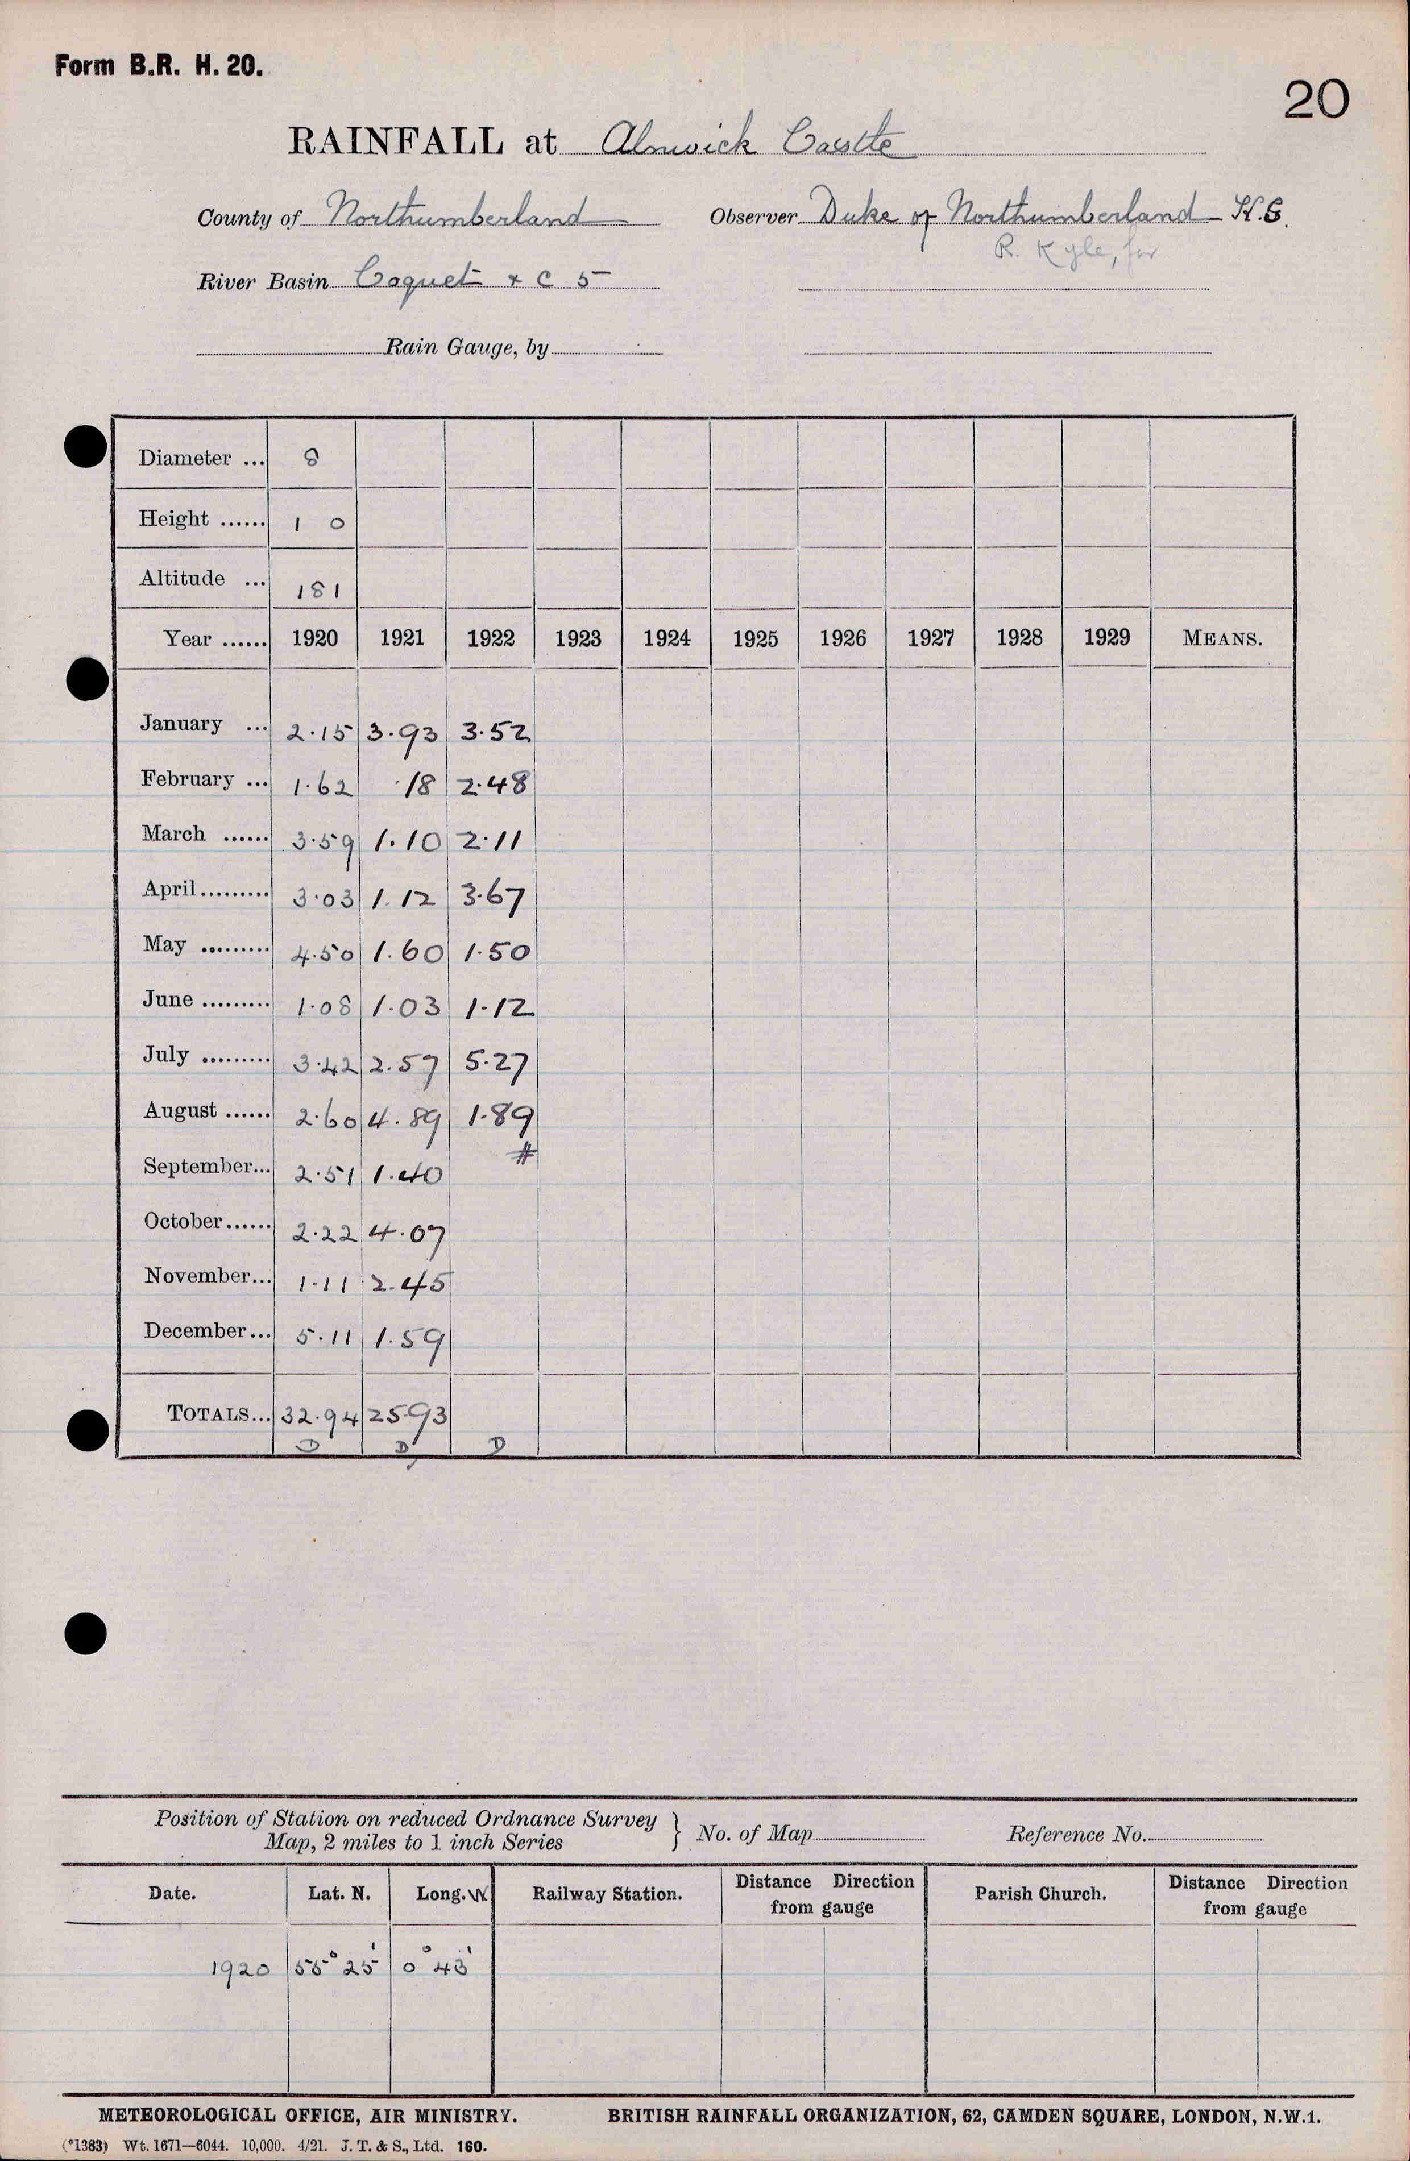 Form B.R. H. 20.
20
RAINFALL at Alnwick Castle
County of Northumberland Observer Duke of Northumberland K.G.
R. Kyle, for
River Basin Coquet & C 5
Rain Gauge, by
Diameter ... 8
Height ...... 1 0
Altitude ... 181
Year ...... 1920 1921 1922 1923 1924 1925 1926 1927 1928 1929 MEANS.
January ... 2.15 3.93 3.52
February ... 1.62 .18 2.48
March ...... 3.59 1.10 2.11
April......... 3.03 1.12 3.67
May ......... 4.50 1.60 1.50
June ......... 1.08 1.03 1.12
July ......... 3.42 2.57 5.27
August ...... 2.60 4.89 1.89
#
September... 2.51 1.40
October...... 2.22 4.07
November... 1.11 2.45
December... 5.11 1.59
TOTALS... 32.94 25.93
D D D
Position of Station on reduced Ordnance Survey
Map, 2 miles to 1 inch Series } No. of Map Reference No.
Date. Lat. N. Long. W. Railway Station. Distance Direction from gauge Parish Church. Distance Direction from gauge
1920 55° 25' 0° 43'
METEOROLOGICAL OFFICE, AIR MINISTRY. BRITISH RAINFALL ORGANIZATION, 62, CAMDEN SQUARE, LONDON, N.W.1.
(*1383) Wt. 1671—6044. 10,000. 4/21. J. T. & S., Ltd. 160.